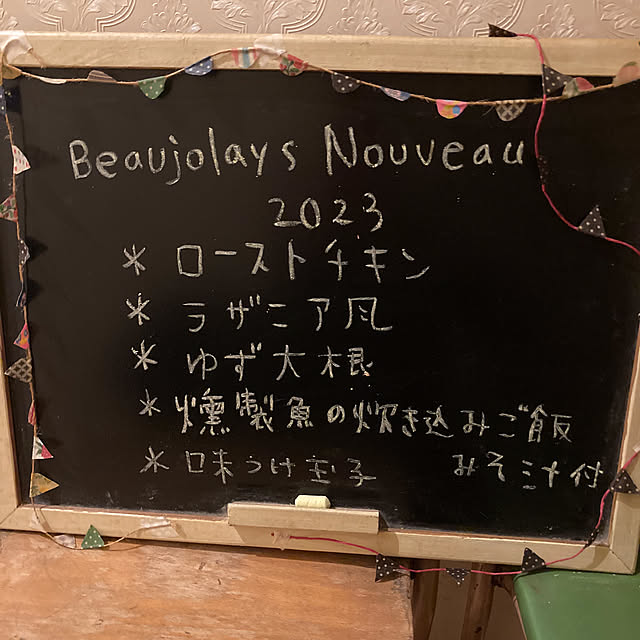 Beaujolays Nouveau
2023
* ローストチキン
* ラザニア風
* ゆず大根
* 燻製魚の炊き込みご飯
* 味つけ玉子 みそ汁付